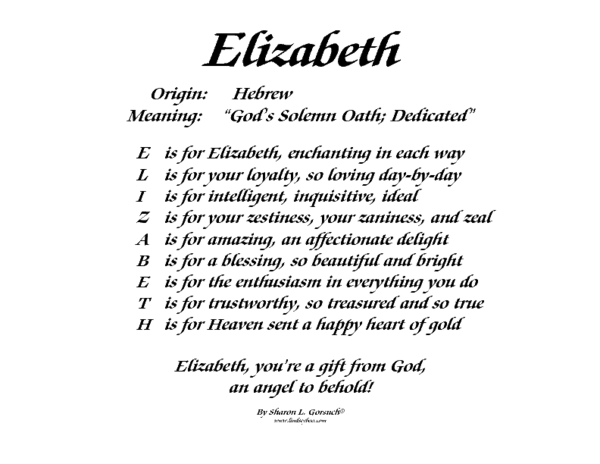 Elizabeth
Origin: Hebrew
Meaning: "God's Solemn Oath; Dedicated"
E is for Elizabeth, enchanting in each way
L is for your loyalty, so loving day-by-day
I is for intelligent, inquisitive, ideal
Z is for your zestiness, your zaniness, and zeal
A is for amazing, an affectionate delight
B is for a blessing, so beautiful and bright
E is for the enthusiasm in everything you do
T is for trustworthy, so treasured and so true
H is for Heaven sent a happy heart of gold
Elizabeth, you're a gift from God,
an angel to behold!
By Sharon L. Gorsuch©